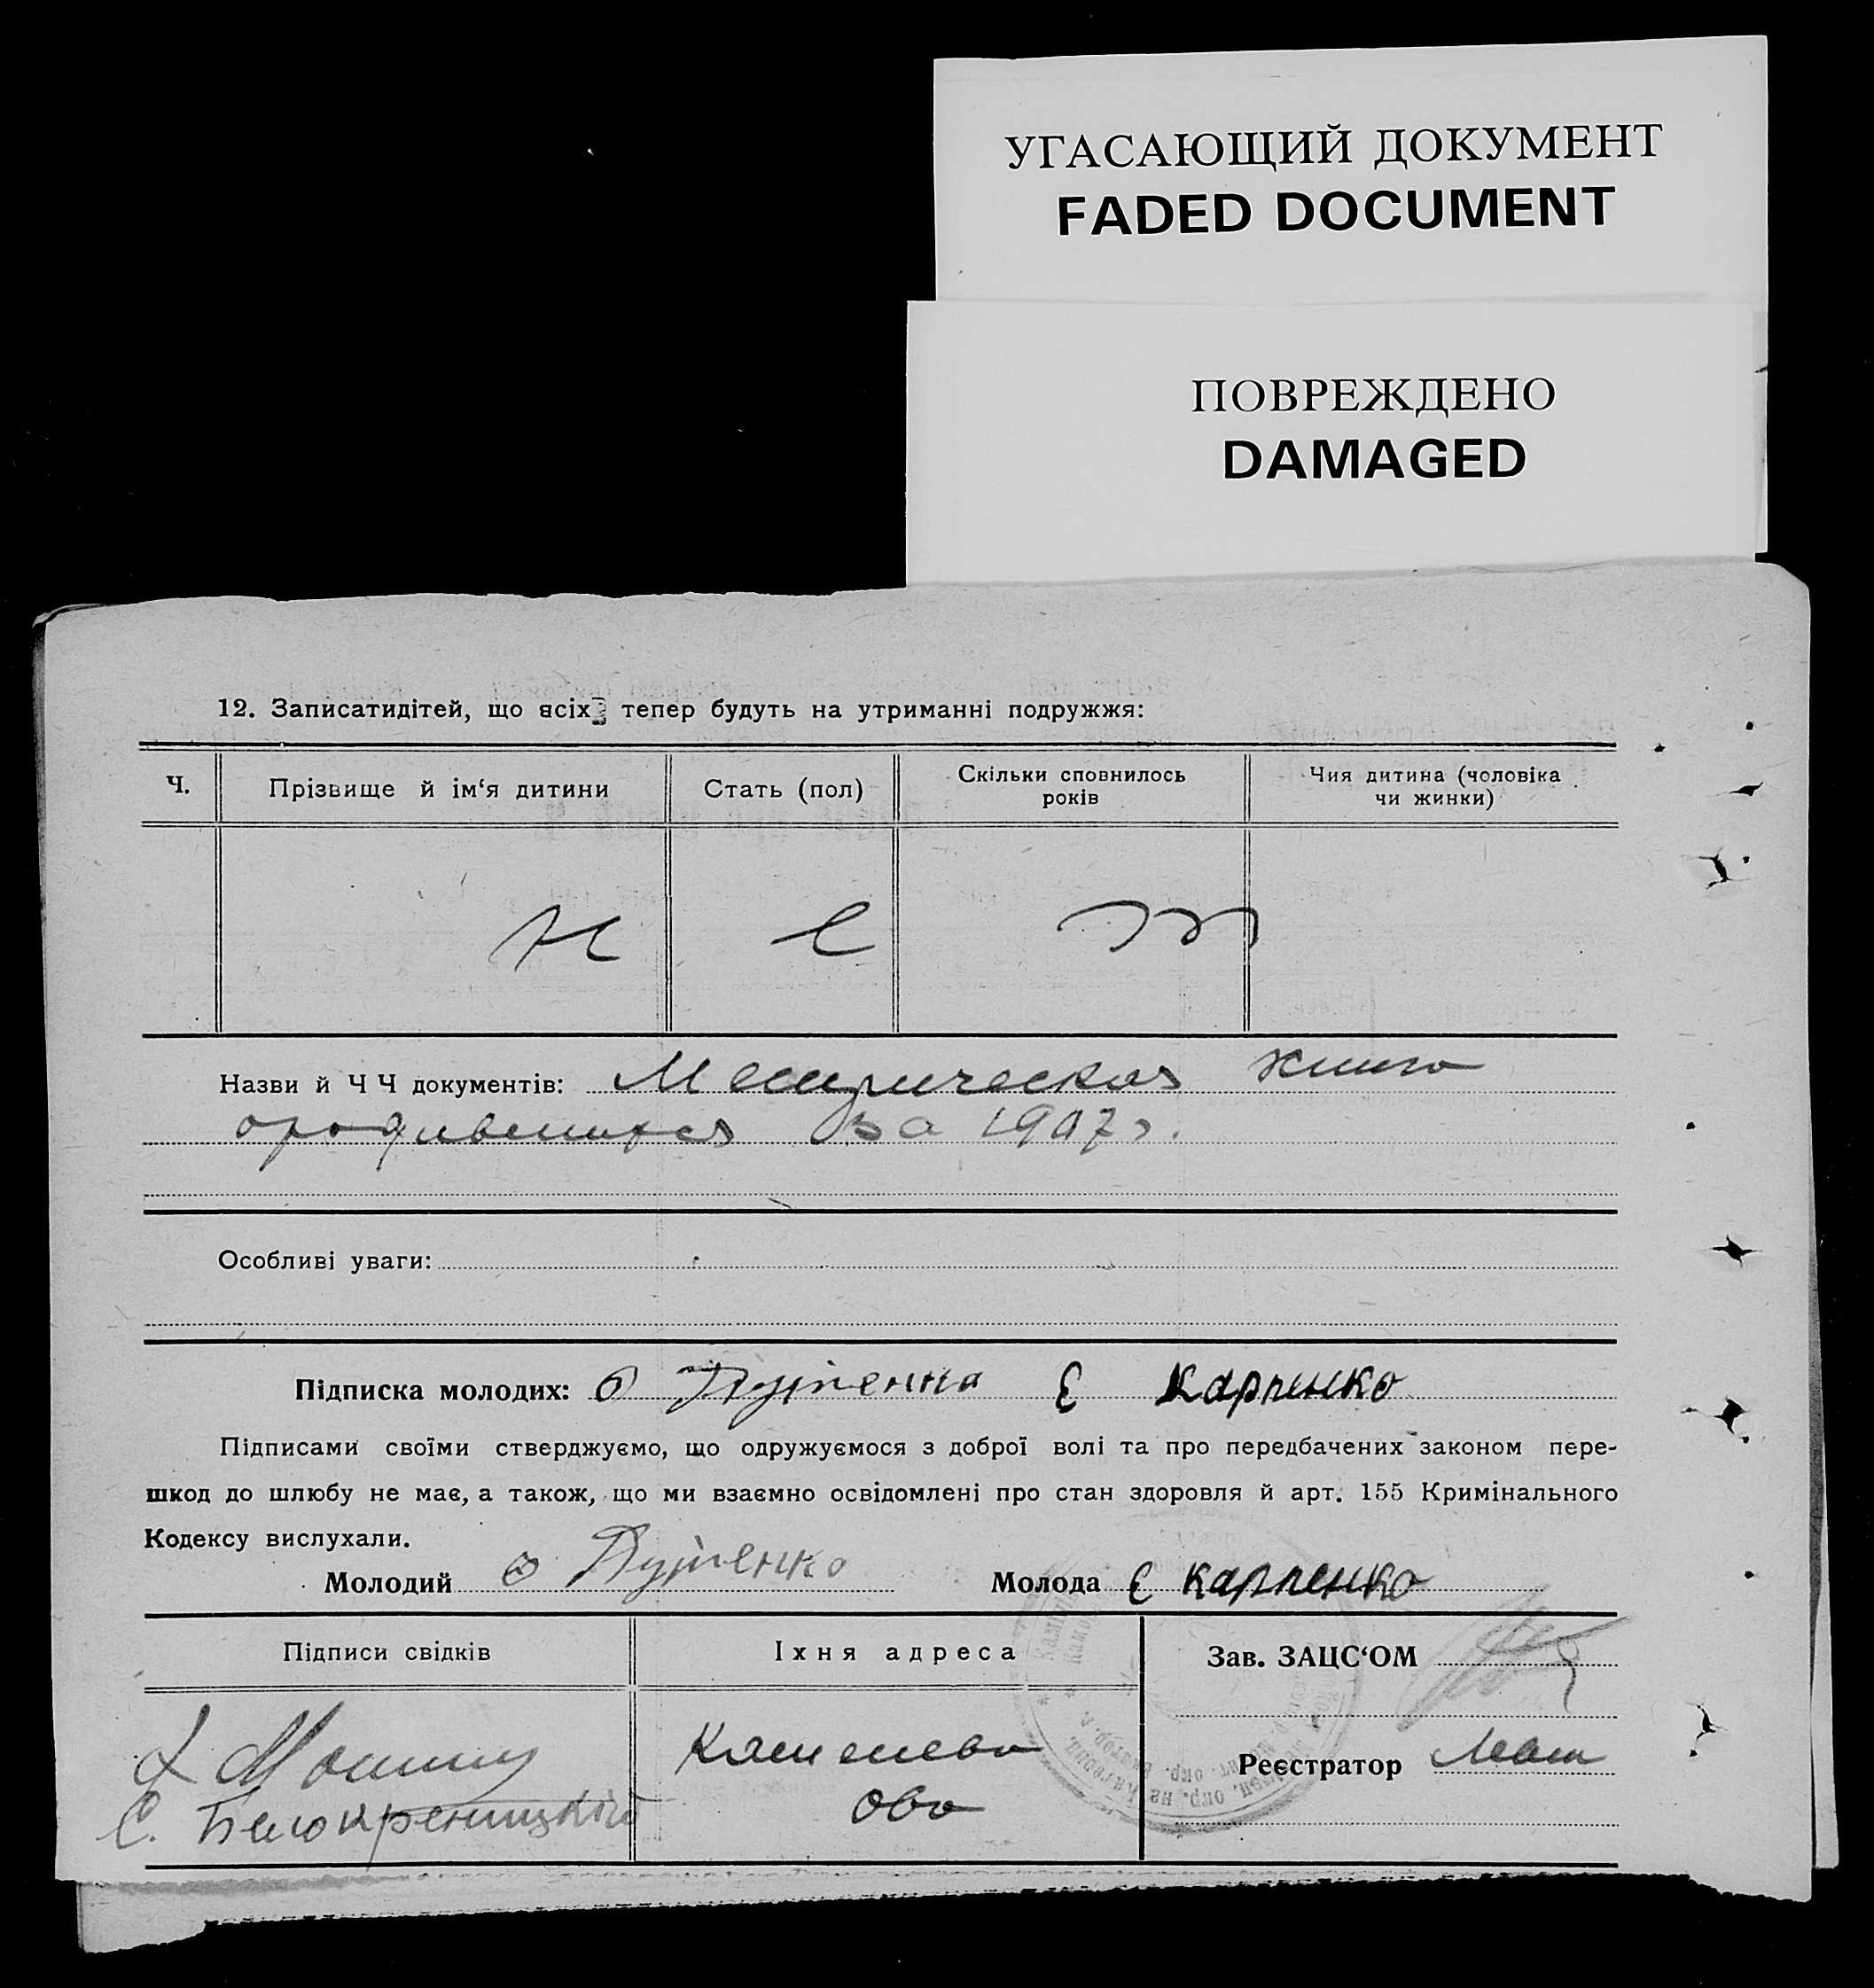 УГАСАЮЩИЙ ДОКУМЕНТ
FADED DOCUMENT
ПОВРЕЖДЕНО
DAMAGED
12. Записатидітей, що всіх тепер будуть на утриманні подружжя:
Ч.
Прізвище й ім‘я дитини
Стать (пол)
Скільки сповнилось
років
Чия дитина (чоловіка
чи жинки)
Н е т
Назви й Ч Ч документів: Метрическая книга
ородившихся за 1907 г.
Особливі уваги:
Підписка молодих: Е Карпенко
Підписами своїми стверджуємо, що одружуємося з доброї волі та про передбачених законом пере-
шкод до шлюбу не має, а також, що ми взаємно освідомлені про стан здоровля й арт. 155 Кримінального
Кодексу вислухали.
Молодий
Молода Е Карпенко
Підписи свідків
Іхня адреса
Зав. ЗАЦС‘ОМ
Реєстратор
С. Белокреницкий